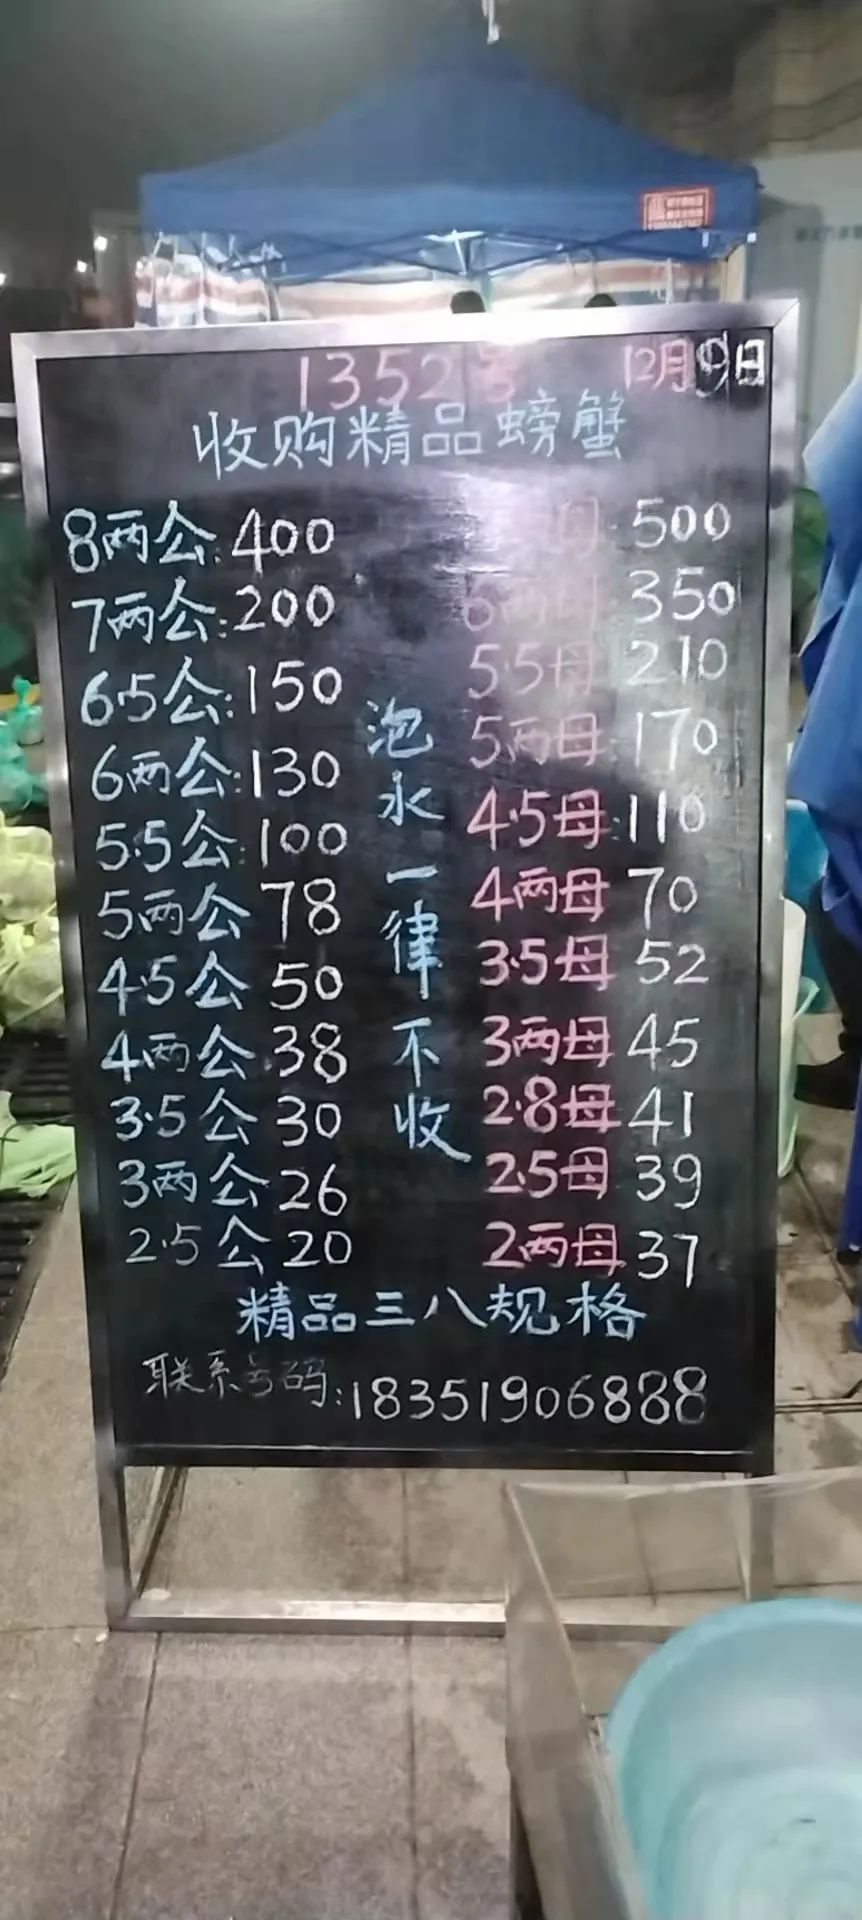 1352号 12月9日
收购精品螃蟹
8两公:400
7两公:200
6.5公:150
6两公:130
5.5公:100
5两公 78
4.5公 50
4两公 38
3.5公 30
3两公 26
2.5公 20
泡水一律不收
母:500
6两母:350
5.5母 210
5两母:170
4.5母:110
4两母 70
3.5母 52
3两母 45
2.8母 41
2.5母 39
2两母 37
精品三八规格
联系号码:18351906888